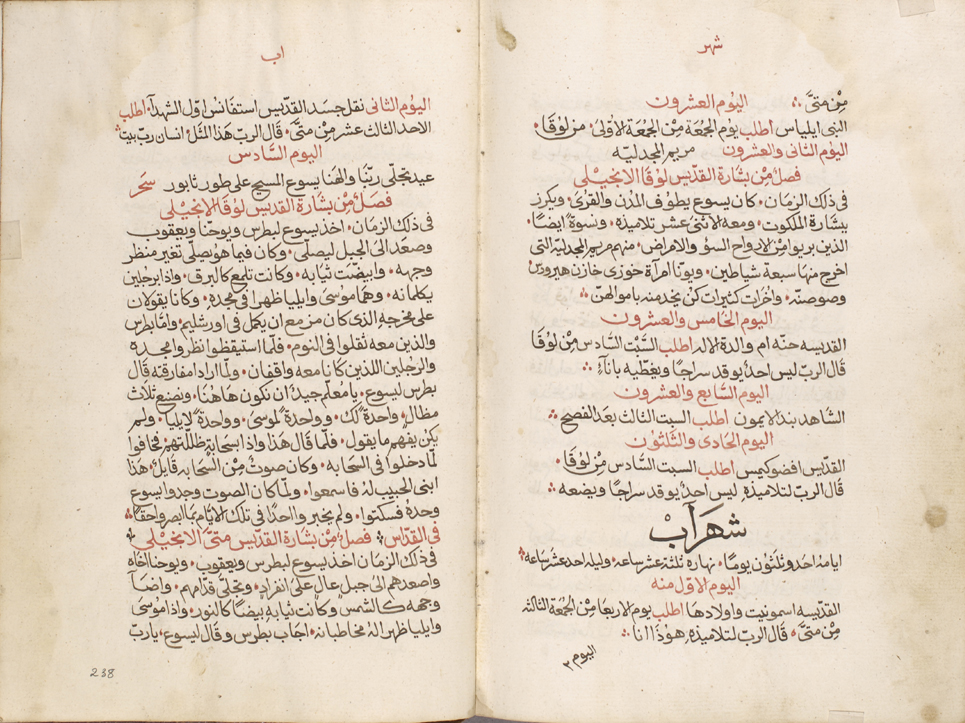 شهر
مِنْ متىَّ ∴ اليوم العشرون
النبى ايلياس اطلب يوم الجمعة مِنْ الجمعَة الأولى • من لوُقَا •
اليوم الثانى والعشرون مريم المجدليّه
فصلٌ مِنْ بشارة القدّيس لوُقَا الانجيلى
فى ذلك الزمان • كان يسوع يطوف المدن والقرى • ويكرز
ببشارة الملكوت • ومعه الاثنى عشر تلاميذه • ونسوةٌ ايضًا •
الذين بريوا مِنْ الارواح السوُ والامراض • منهم مريم المجدليّة التى
اخرج منهَا سبعة شياطين • ويونّا امراَة خوزى خازن هيرودس
وصوصنّه • واُخَرات كثيرات كن يخدمنه باموالهنّ ∴
اليوم الخامس والعشرون
القديسه حنّه ام والدة الاله اطلب السَّبْت السَّادس مِنْ لوُقَا
قَال الربّ ليس احدٌ يوقد سراجًا ويغطّيه باناءٍ ∴
اليوم السَّابع والعشرون
الشاهد بندلايمون اطلب السبت الثالث بعد الفصح ∴
اليوم الحَادى والثلثون
القدّيس افضوكيمس اطلب السبت السَّادس مِنْ لوُقَا •
قَال الربّ لتلاميذهِ ليس احدٌ يوقد سراجًا ويضعه ∴
شهر آب
ايامهُ احَد وثلثون يومًا • نهاره ثلثة عشر ساعه • وليله احد عشر ساعه ∴
اليوم الاوّل منه
القدّيسه اسمونيت واولادها اطلب يوم الاربعَا مِنْ الجمعَة الثالثه
مِنْ متىَّ • قَال الربّ لتلاميذهِ هوُذا انا ∴
اليوم ٢
اب
اليوم الثانى نقل جسد القدّيس استفانس اوّل الشهدآء اطلب
الاحد الثالث عشر مِنْ متىَّ • قَال الربّ هَذا المثل • انسان ربّ بيت
اليوم السَّادس
عيد تجلّى ربّنَا والهنَا يسوع المسيح على طور ثابور سَحَر
فصلٌ مِنْ بشارة القديس لوُقَا الانجيلى
فى ذلك الزمان • اخذ يسوع لبطرس ويوحنّا ويعقوب
وصعد الىَ الجبل ليصلّى • وكان فيما هو يصلّى تغير منظر
وجهه • وابيضّت ثيابه • وكانت تلمع كالبرق • واذا برجلين
يكلمانه • وهمَا موُسَى وايليا ظهرا فى مجدهِ • وكانا يقولان
على مخرجه الذى كان مزمع ان يكمل فى اورشليم • وامّا بطرس
والذين معه ثقلوا فى النوم • فلمّا استيقظوا نظروا مجده
والرجلين اللذين كانا معه واقفان • ولمّا ارادا مفارقته قَال
بطرس ليسوع • يا مُعلّم جيّدٌ ان نكون هاهُنَا • ونصنع ثلاث
مظال • واحدةً لكَ • وواحدةً لموُسَى • وواحدةً لايليا • ولم
يكن يفهم ما يقول • فلمّا قال هَذا واذا سحابة ظللتهم فخافوا
لمّا دخلوا فى السّحابه • وكان صوتٌ مِنْ السَّحابه قايلٌ • هَذا
ابنى الحبيب لهُ فاسمعوا • ولمّا كان الصوت وجدوا يسوع
وحدهُ فسكتوا • ولم يخبروا احدًا فى تلك الايّام بما ابصروا حقًا ∴
فى القدّاس • فصلٌ مِنْ بشارة القدّيس متىَّ الانجيلى •
فى ذلك الزمان اخذ يسوع لبطرس ويعقوب • ويوحنّا اخَاه
واصعدهم الىَ جبلٍ عالٍ علىَ انفرادٍ • وتجلّى قدّامهم • واضَآ
وجهه كالشمس وكانت ثيابهُ بيضًا كالنور • واذا موُسَى
وايليا ظهرا لهُ مخاطبانه • اجَاب بطرس وقَال ليسوع • ياربّ
238